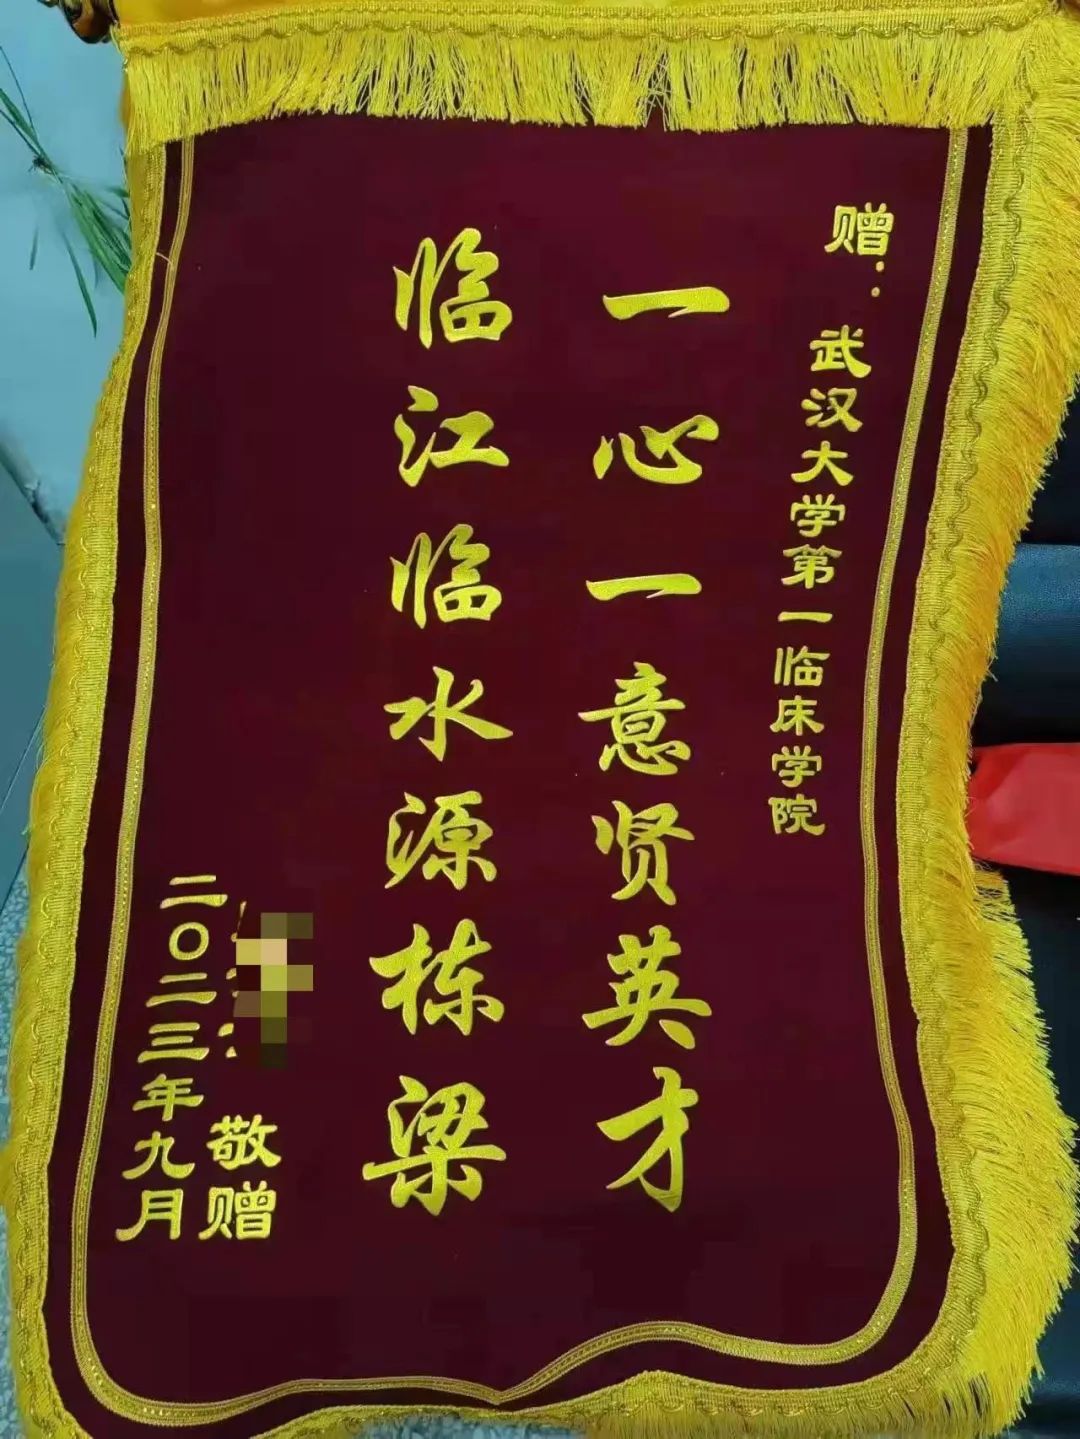 赠：武汉大学第一临床学院
一心一意贤英才
临江临水源栋梁
敬赠
二〇二三年九月